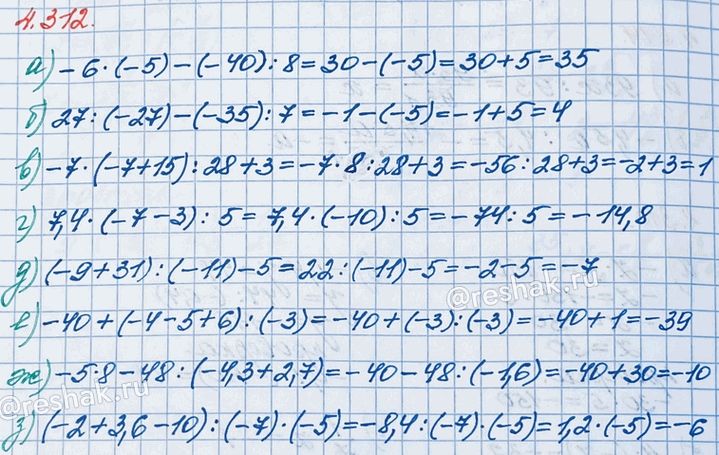 4.312.
а) -6·(-5)-(-40):8=30-(-5)=30+5=35
б) 27:(-27)-(-35):7=-1-(-5)=-1+5=4
в) -7·(-7+15):28+3=-7·8:28+3=-56:28+3=-2+3=1
г) 7,4·(-7-3):5=7,4·(-10):5=-74:5=-14,8
д) (-9+31):(-11)-5=22:(-11)-5=-2-5=-7
@reshak.ru
е) -40+(-4-5+6):(-3)=-40+(-3):(-3)=-40+1=-39
ж) -5·8-48:(-4,3+2,7)=-40-48:(-1,6)=-40+30=-10
@reshak.ru
з) (-2+3,6-10):(-7)·(-5)=-8,4:(-7)·(-5)=1,2·(-5)=-6